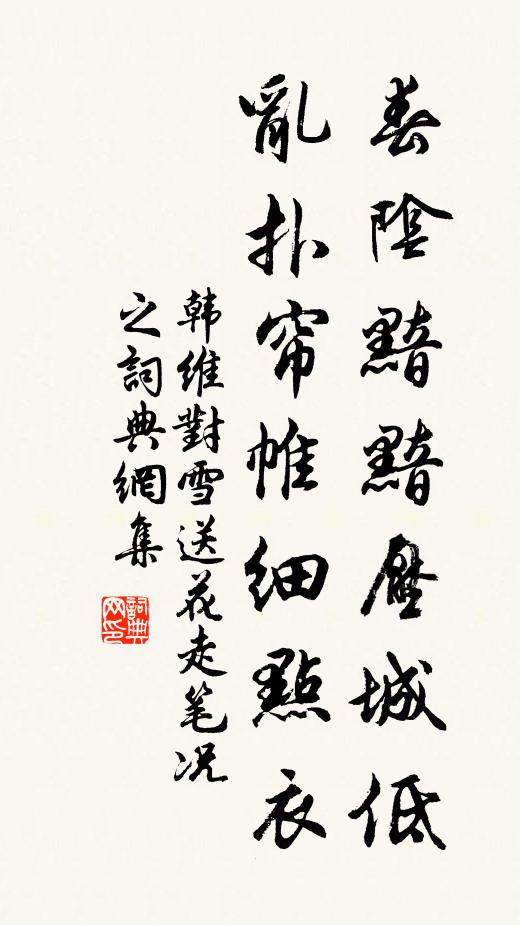 春陰黯黯壓城低
亂扑帘帷細點衣
韩維對雪送花走笔况
之詞典網集
詞典
网印